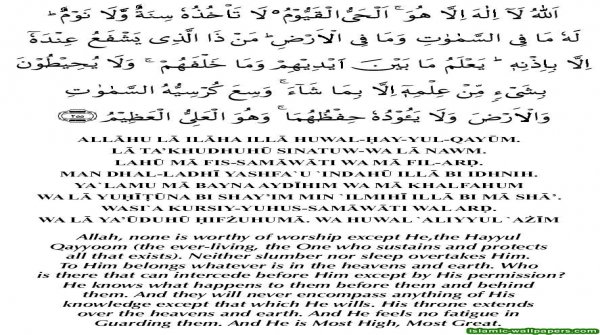 اَللهُ لَآ اِلٰهَ اِلَّا هُوَ ۚ اَلْحَىُّ الْقَيُّوْمُ ۬ لَا تَاْخُذُهٗ سِنَةٌ وَّلَا نَوْمٌ ؕ
لَهٗ مَا فِى السَّمٰوٰتِ وَمَا فِى الْاَرْضِ ؕ مَنْ ذَا الَّذِىْ يَشْفَعُ عِنْدَهٗٓ
اِلَّا بِاِذْنِهٖ ؕ يَعْلَمُ مَا بَيْنَ اَيْدِيْهِمْ وَمَا خَلْفَهُمْ ۚ وَلَا يُحِيْطُوْنَ
بِشَىْءٍ مِّنْ عِلْمِهٖٓ اِلَّا بِمَا شَآءَ ۚ وَسِعَ كُرْسِيُّهُ السَّمٰوٰتِ
وَالْاَرْضَ ۚ وَلَا يَئُوْدُهٗ حِفْظُهُمَا ۚ وَهُوَ الْعَلِىُّ الْعَظِيْمُ ﴿٢٥٥﴾
ALLĀHU LĀ ILĀHA ILLĀ HUWAL-ḤAY-YUL-QAYŪM.
LĀ TA'KHUDHUHŪ SINATUW-WA LĀ NAWM.
LAHŪ MĀ FIS-SAMĀWĀTI WA MĀ FIL-ARḌ.
MAN DHAL-LADHĪ YASHFA`U `INDAHŪ ILLĀ BI IDHNIH.
YA`LAMU MĀ BAYNA AYDĪHIM WA MĀ KHALFAHUM
WA LĀ YUḤĪṬŪNA BI SHAY'IM MIN `ILMIHĪ ILLĀ BI MĀ SHĀ'.
WASI`A KURSIY-YUHUS-SAMĀWĀTI WAL ARḌ.
WA LĀ YA'ŪDUHŪ ḤIFẒUHUMĀ. WA HUWAL `ALIYYUL `AẒĪM
Allah, none is worthy of worship except He,the Hayyul
Qayyoom (the ever-living, the One who sustains and protects
all that exists). Neither slumber nor sleep overtakes Him.
To Him belongs whatever is in the heavens and earth. Who
is there that can intercede before Him except by His permission?
He knows what happens to them before them and behind
them. And they will never encompass anything of His
knowledge except that which He wills. His throne extends
over the heavens and earth. And He feels no fatigue in
Guarding them. And He is Most High, Most Great.
islamic-wallpapers.com